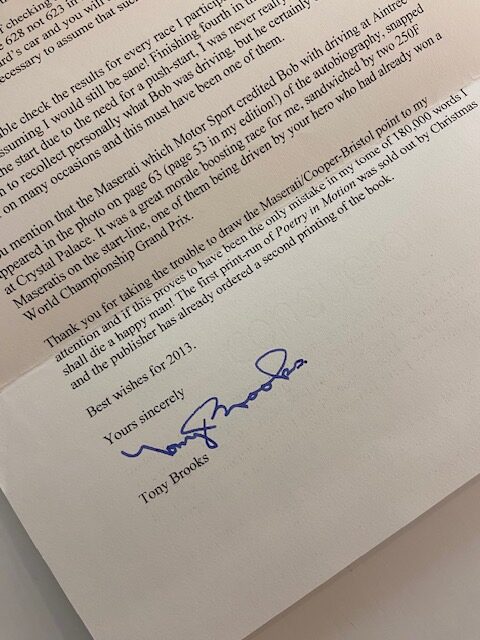 of checking
628 not 623 in
ard's car and you will
ecessary to assume that suc
ble check the results for every race I particip
ssuming I would still be sane! Finishing fourth in th
he start due to the need for a push-start, I was never really
n to recollect personally what Bob was driving, but he certainly
on many occasions and this must have been one of them.
ou mention that the Maserati which Motor Sport credited Bob with driving at Aintree
ppeared in the photo on page 63 (page 53 in my edition!) of the autobiography, snapped
at Crystal Palace. It was a great morale boosting race for me, sandwiched by two 250F
Maseratis on the start-line, one of them being driven by your hero who had already won a
World Championship Grand Prix.
Thank you for taking the trouble to draw the Maserati/Cooper-Bristol point to my
attention and if this proves to have been the only mistake in my tome of 180,000 words I
shall die a happy man! The first print-run of Poetry in Motion was sold out by Christmas
and the publisher has already ordered a second printing of the book.
Best wishes for 2013.
Yours sincerely
Tony Brooks
Tony Brooks